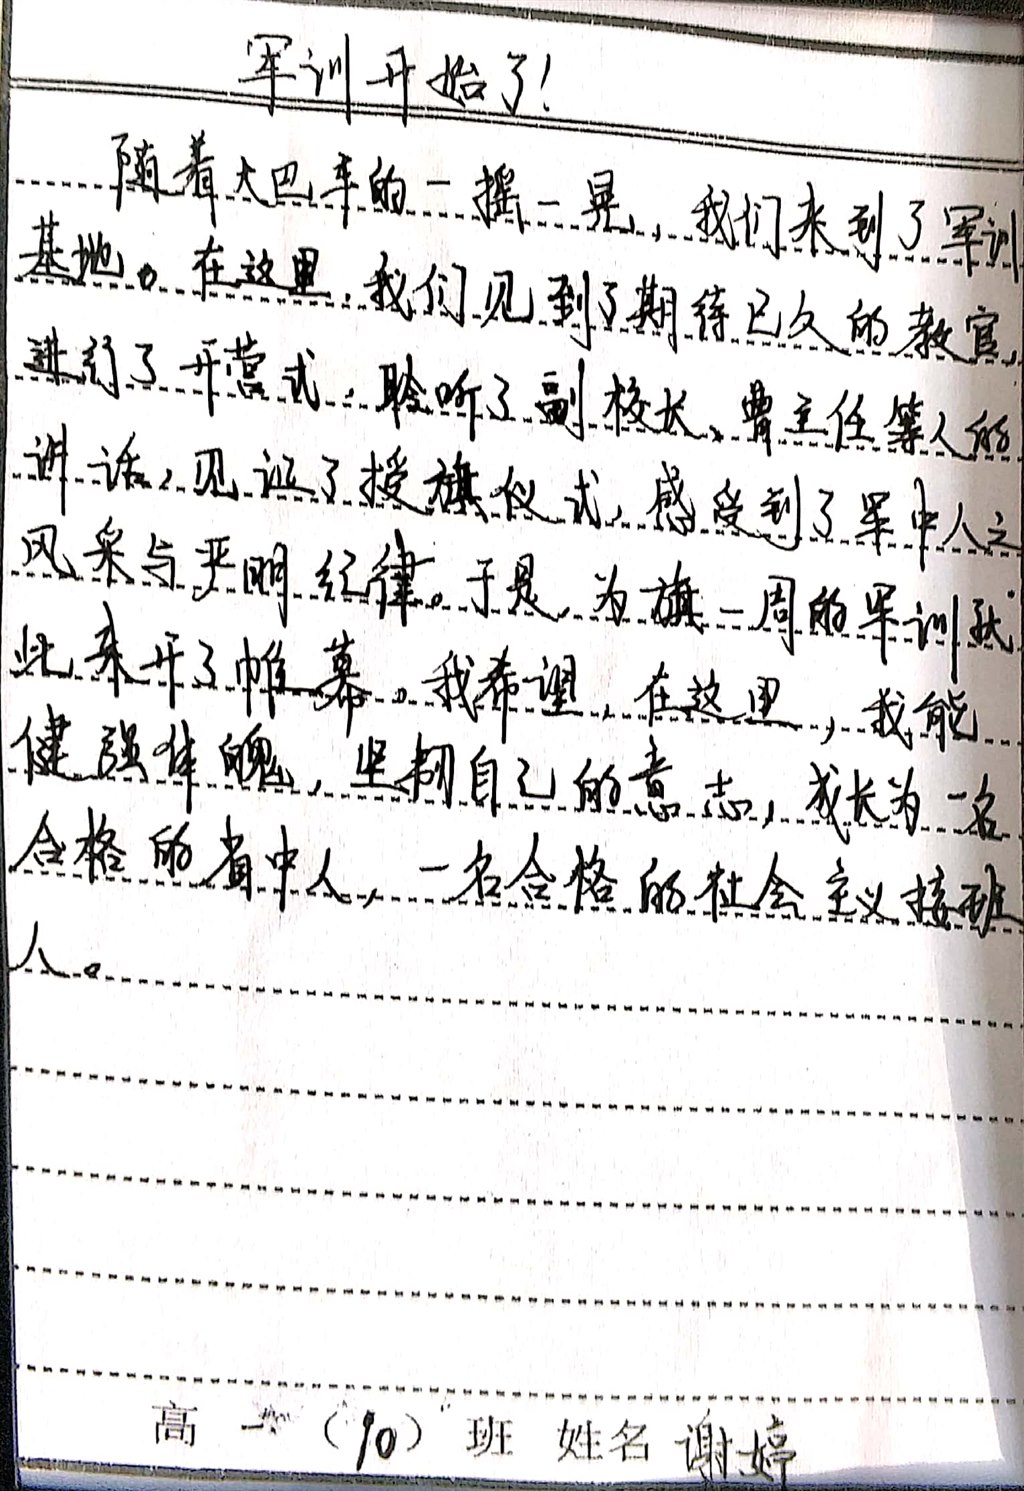 军训开始了!
随着大巴车的一摇一晃,我们来到了军训
基地。在这里,我们见到了期待已久的教官,
进行了开营式,聆听了副校长、曹主任等人的
讲话,见证了授旗仪式,感受到了军中人之
风采与严明纪律。于是,为旗一周的军训就
此来开了帷幕。我希望,在这里,我能
健强体魄,坚韧自己的意志,成长为一名
合格的省中人,一名合格的社会主义接班
人。
高一(10)班 姓名 谢婷